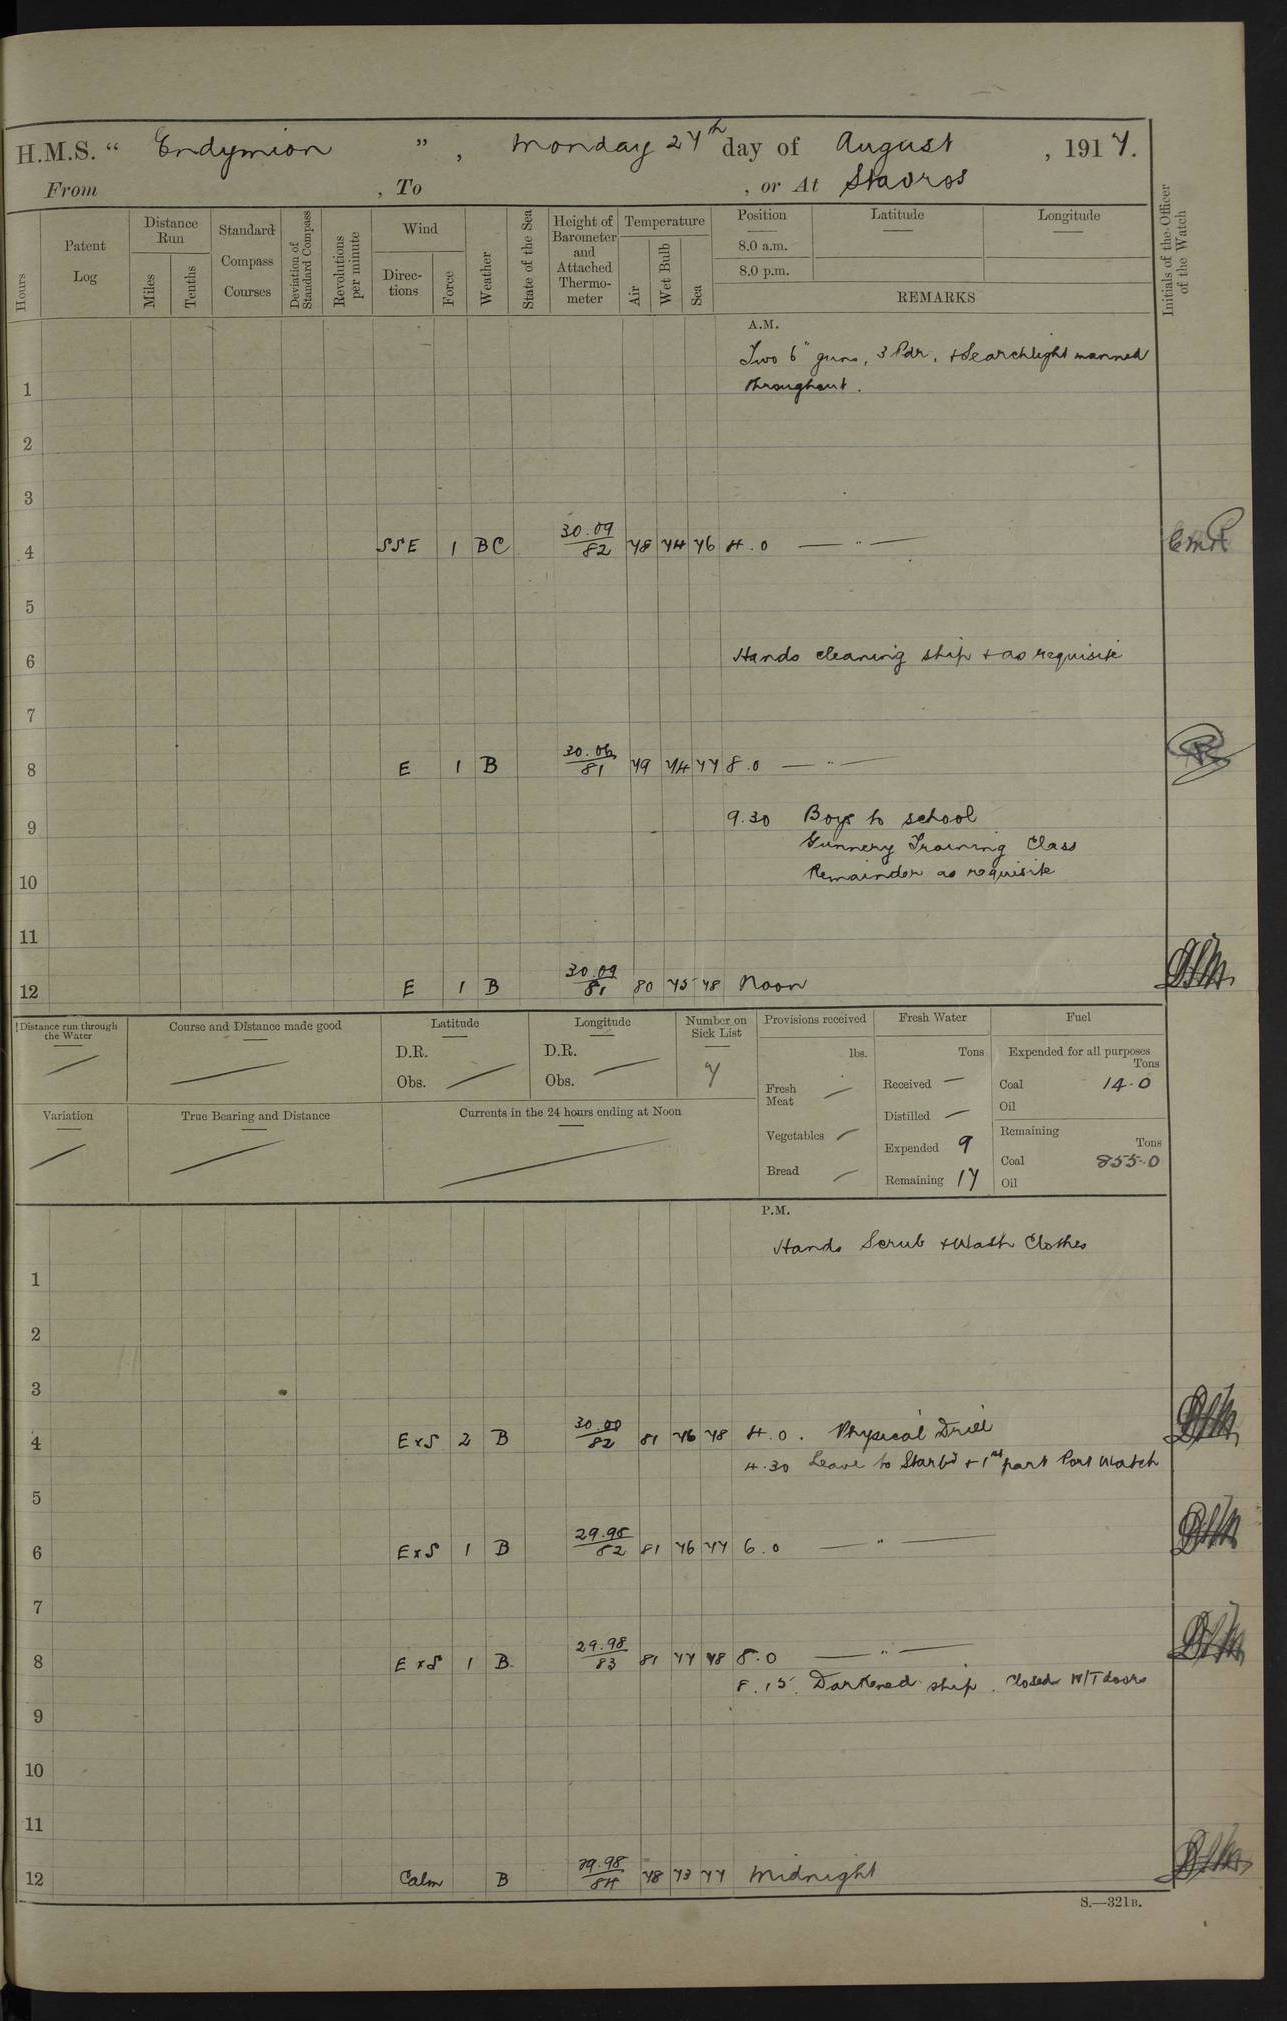 H.M.S. " Endymion ", Monday 27th day of August, 1917.
From , To , or At Stavros
Hours
Patent Log
Distance Run
Miles
Tenths
Standard Compass Courses
Deviation of Standard Compass
Revolutions per minute
Wind
Directions
Force
Weather
State of the Sea
Height of Barometer and Attached Thermometer
Temperature
Air
Wet Bulb
Sea
Position
8.0 a.m.
8.0 p.m.
Latitude
Longitude
REMARKS
Initials of the Officer of the Watch
A.M.
Two 6" guns, 3 Pdr, + Searchlight manned
1 throughout.
2
3
4 SSE 1 BC 30.09/82 78 74 76 4.0 — " —
5
6 Hands cleaning ship + as requisite
7
8 E 1 B 30.06/81 79 74 77 8.0 — " —
9 9.30 Boys to school
Gunnery Training Class
10 Remainder as requisite
11
12 E 1 B 30.09/81 80 75 78 Noon
Distance run through the Water
Course and Distance made good
Latitude
D.R.
Obs.
Longitude
D.R.
Obs.
Number on Sick List
7
Provisions received
lbs.
Fresh Meat
Vegetables
Bread
Fresh Water
Tons
Received —
Distilled —
Expended 9
Remaining 17
Fuel
Expended for all purposes
Tons
Coal 14.0
Oil
Remaining
Tons
Coal 855.0
Oil
Variation
True Bearing and Distance
Currents in the 24 hours ending at Noon
P.M.
Hands Scrub + Wash Clothes
1
2
3
4 ExS 2 B 30.00/82 81 76 78 4.0. Physical Drill
4.30 Leave to Starbd + 1st part Port Watch
5
6 ExS 1 B 29.98/82 81 76 77 6.0 — " —
7
8 ExS 1 B. 29.98/83 81 77 78 8.0 — " —
8.15. Darkened ship. Closed W/T doors
9
10
11
12 Calm B 29.98/84 78 73 77 Midnight
S.—321B.